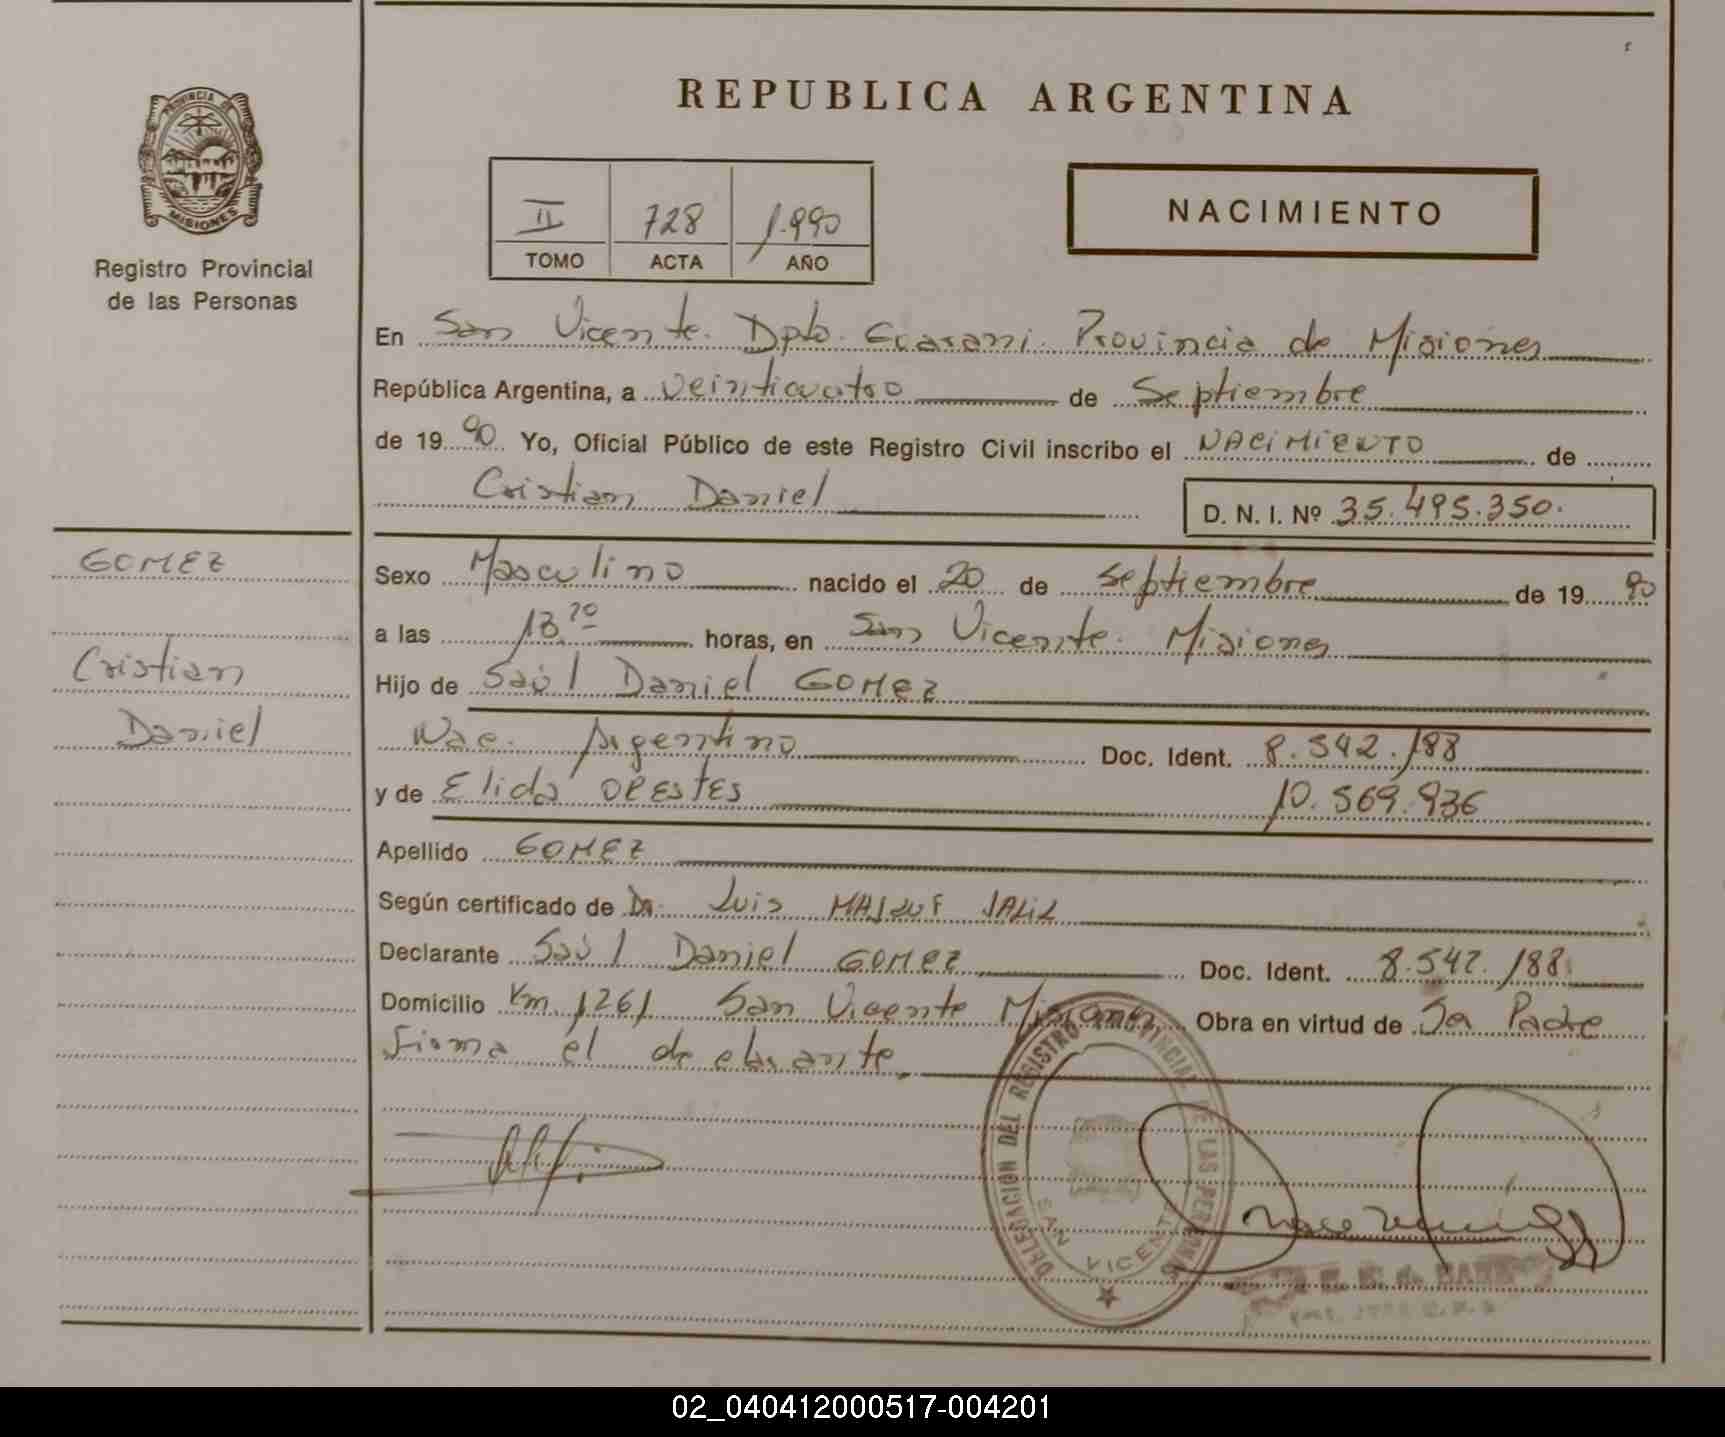 REPUBLICA ARGENTINA
PROVINCIA DE
MISIONES
Registro Provincial
de las Personas
II 728 1.990
TOMO ACTA AÑO
NACIMIENTO
En San Vicente. Dpto. Guarani. Provincia de Misiones
República Argentina, a veinticuatro de Septiembre
de 1990 Yo, Oficial Público de este Registro Civil inscribo el NACIMIENTO de
Cristian Daniel D. N. I. Nº 35.495.350.
GOMEZ
Cristian
Daniel
Sexo Masculino nacido el 20 de Septiembre de 19 90
a las horas, en San Vicente. Misiones
Hijo de Saúl Daniel GOMEZ
Nac. Argentino Doc. Ident. 8.542.188
y de Elida ORESTES 10.569.936
Apellido GOMEZ
Según certificado de Dr. Luis MASLUF JALIL
Declarante Saúl Daniel GOMEZ Doc. Ident. 8.542.188
Domicilio Km. 1261 San Vicente Misiones Obra en virtud de Ser Padre
Firma el declarante
DELEGACION DEL REGISTRO PROVINCIAL DE LAS PERSONAS
SAN VICENTE
02_040412000517-004201